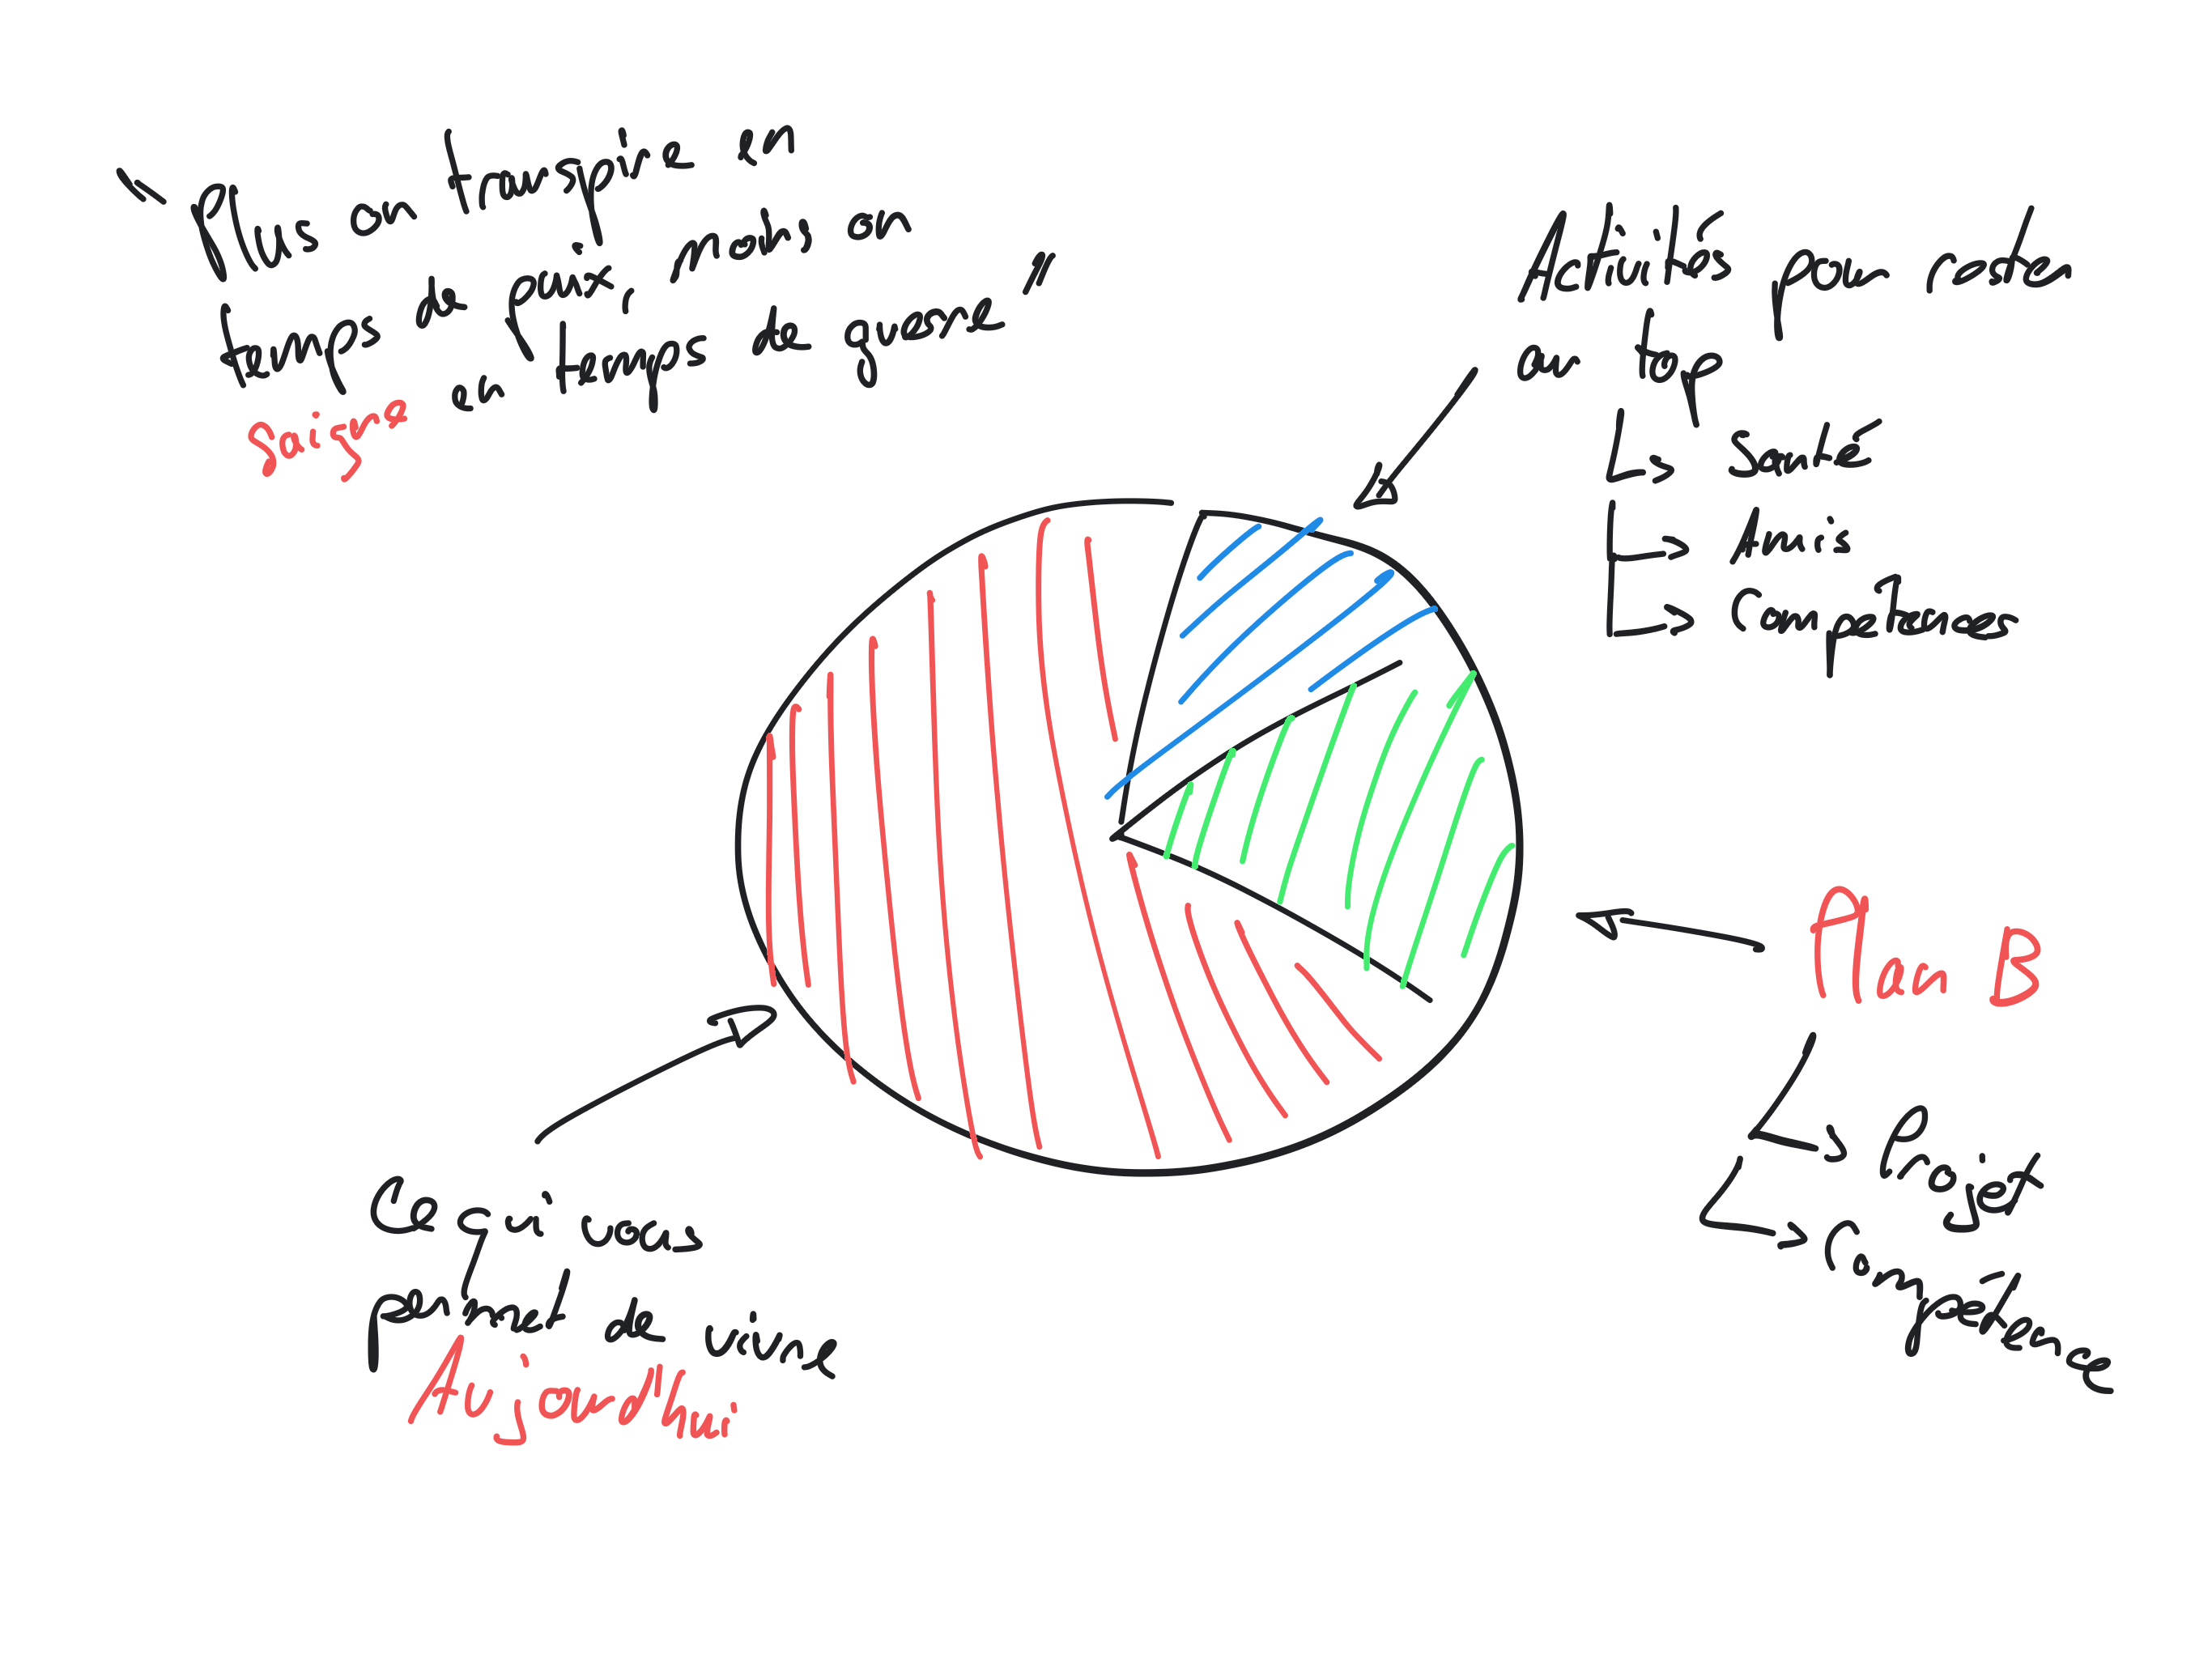 " Plus on transpire en
temps de paix, moins on
saigne en temps de guerre "
Activités pour rester
au top
Santé
Amis
Compétences
Plan B
Projet
Compétence
Ce qui vous
permet de vivre
Aujourd'hui